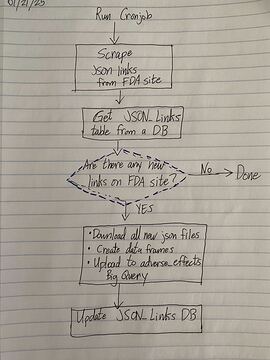 01/21/25
Run Cronjob
Scrape
Json links
from FDA site
Get JSON_Links
table from a DB
Are there any new
links on FDA site?
No
Done
YES
• Download all new json files
• Create data frames
• Upload to adverse_effects
Big Query
Update JSON_Links DB